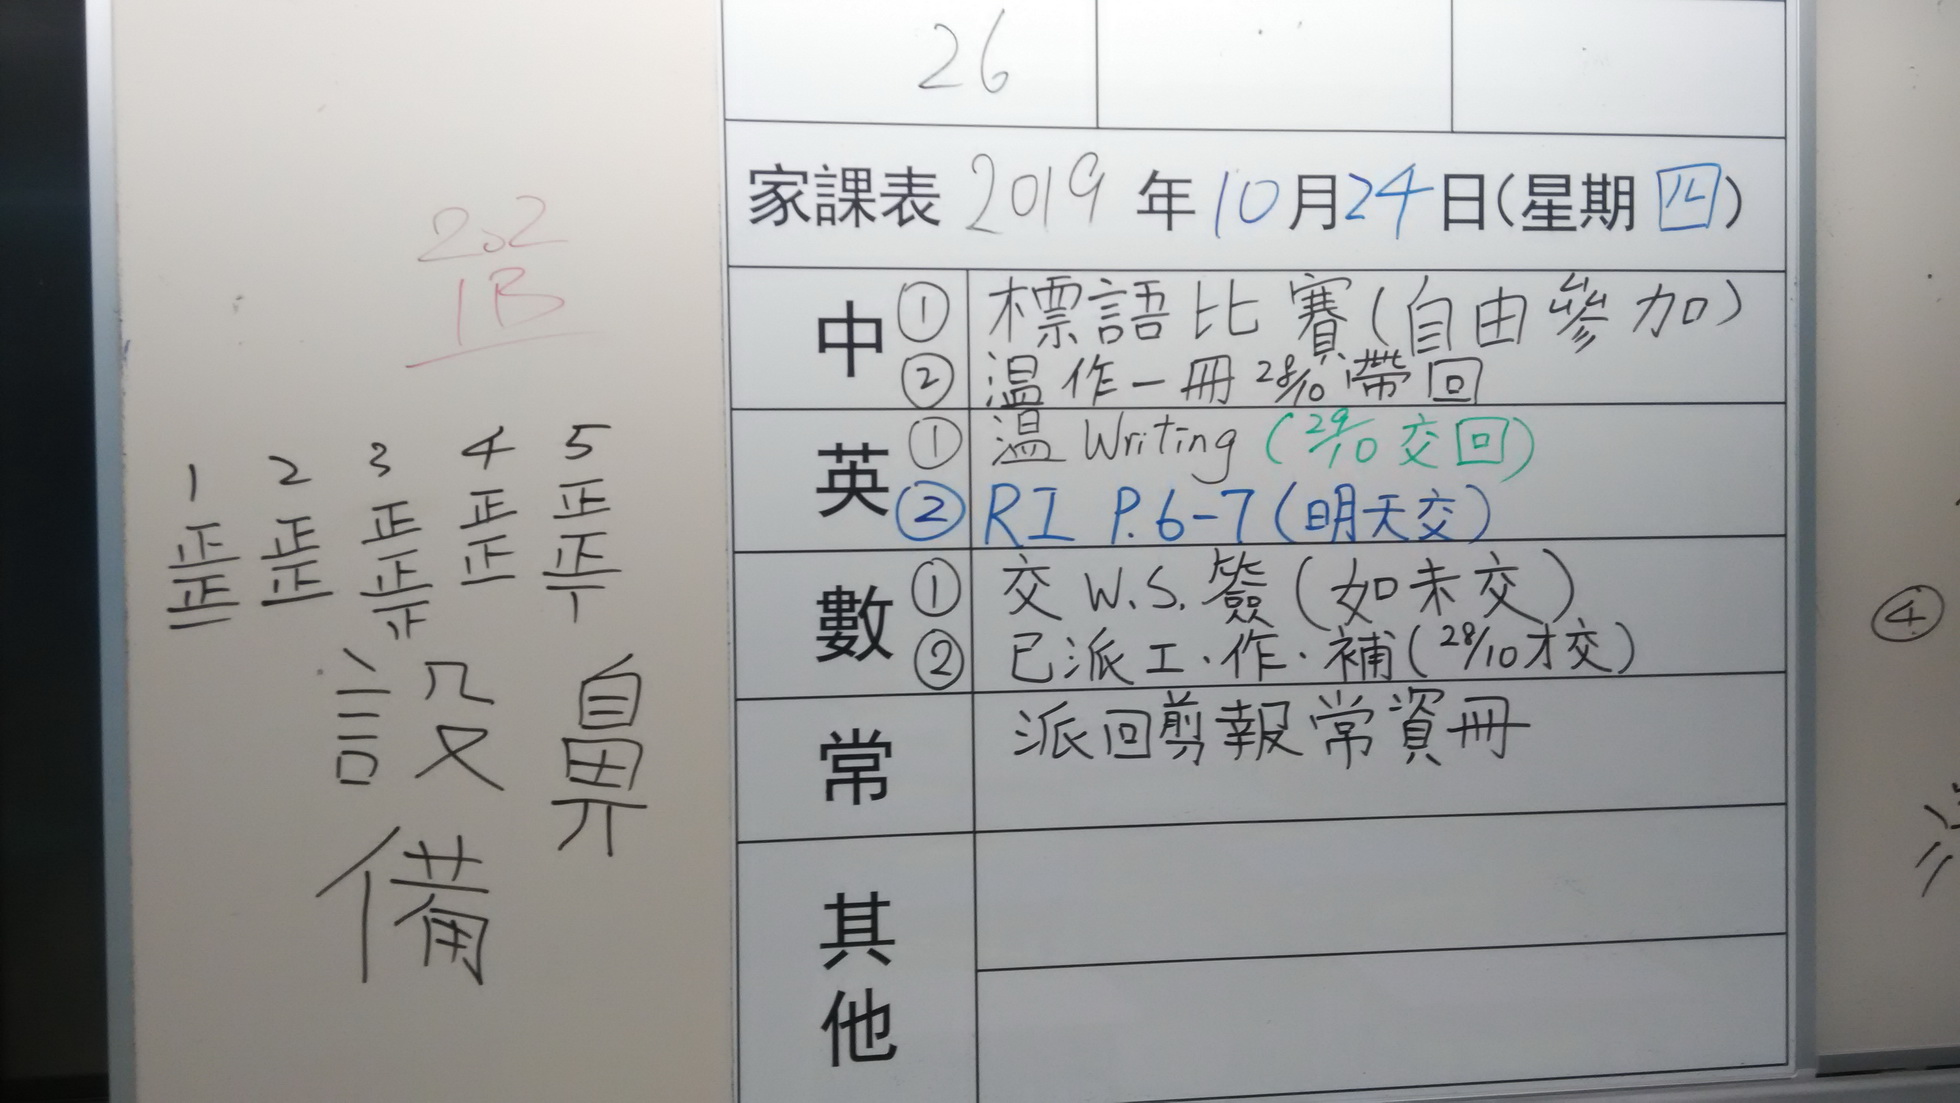 26
家課表 2019年10月24日(星期四)
中 ① 標語比賽(自由參加)
② 温作一冊 28/10帶回
英 ① 温 Writing (29/10交回)
② RI P.6-7(明天交)
數 ① 交 W.S. 簽(如未交)
② 已派工.作.補(28/10才交)
常 派回剪報常資冊
其他
202
1B
1 2 3 4 5
正 正 正 正 正
正 正 正 正 正
設
備
鼻
④